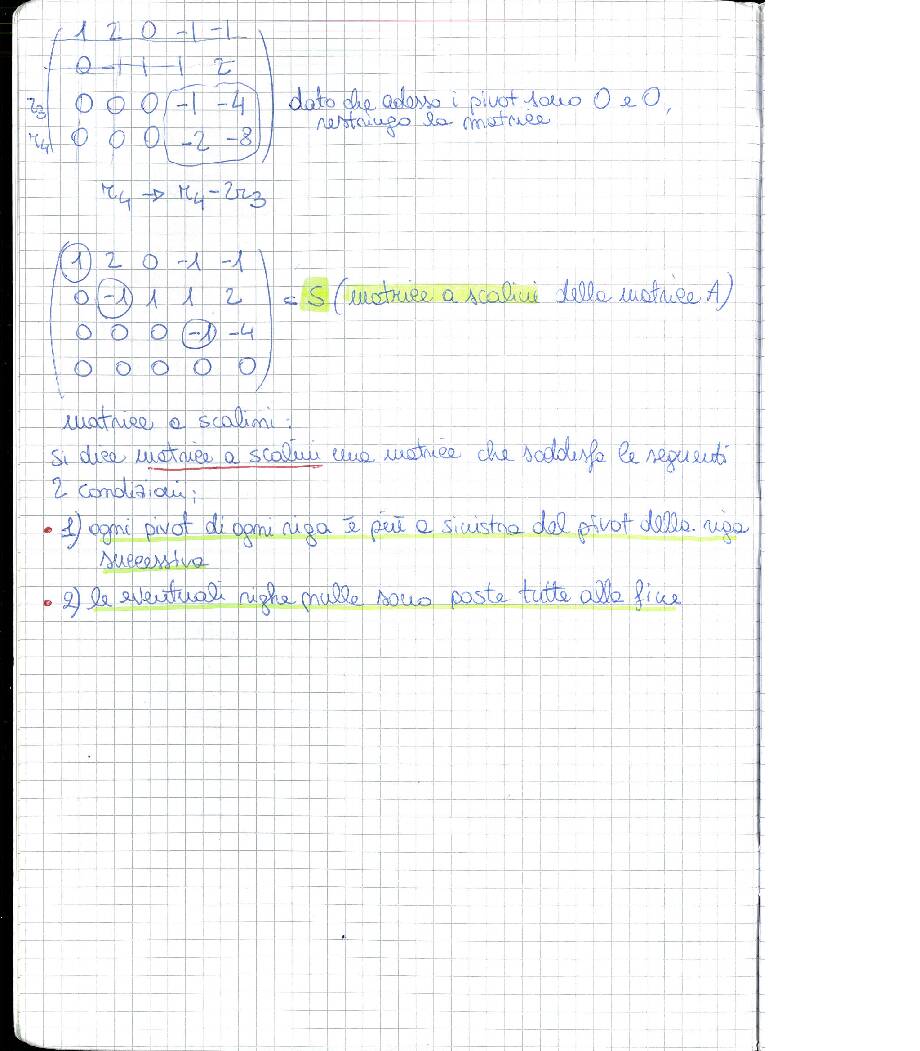 1 2 0 -1 -1
0 -1 1 1 2
r3 0 0 0 -1 -4 dato che adesso i pivot sono 0 e 0,
restringo la matrice
r4 0 0 0 -2 -8
r4 → r4 - 2r3
1 2 0 -1 -1
0 -1 1 1 2 = S (matrice a scalini della matrice A)
0 0 0 -1 -4
0 0 0 0 0
matrice a scalini:
si dice matrice a scalini una matrice che soddisfa le seguenti
2 condizioni:
• 1) ogni pivot di ogni riga è più a sinistra del pivot della riga
successiva
• 2) le eventuali righe nulle sono poste tutte alla fine